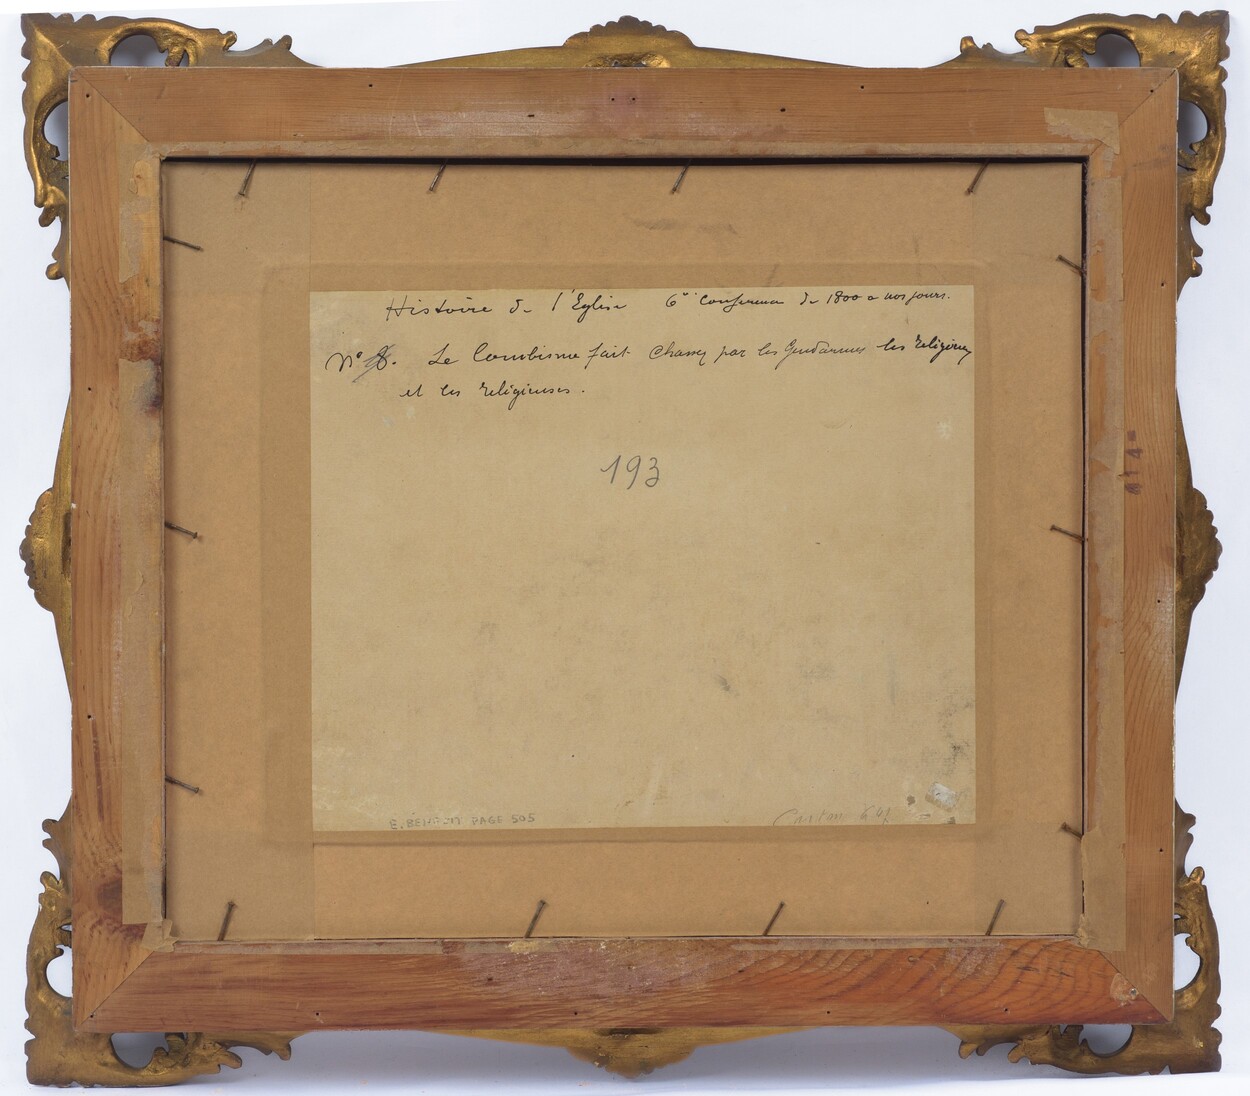 Histoire de l'Eglise 6e Conference de 1800 a nos jours.
N° 8. Le Combisme fait chasser par les Gendarmes les Religieux
et les religieuses.
193
E. BENEZIT PAGE 505